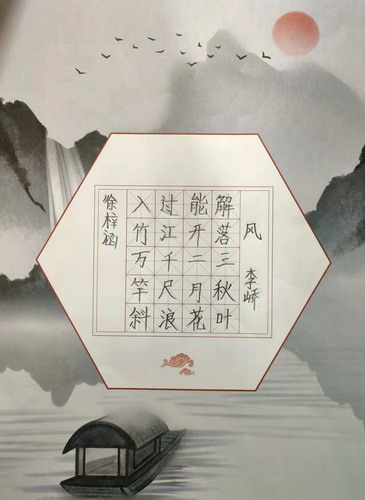 风
李峤
解落三秋叶
能开二月花
过江千尺浪
入竹万竿斜
徐梓涵